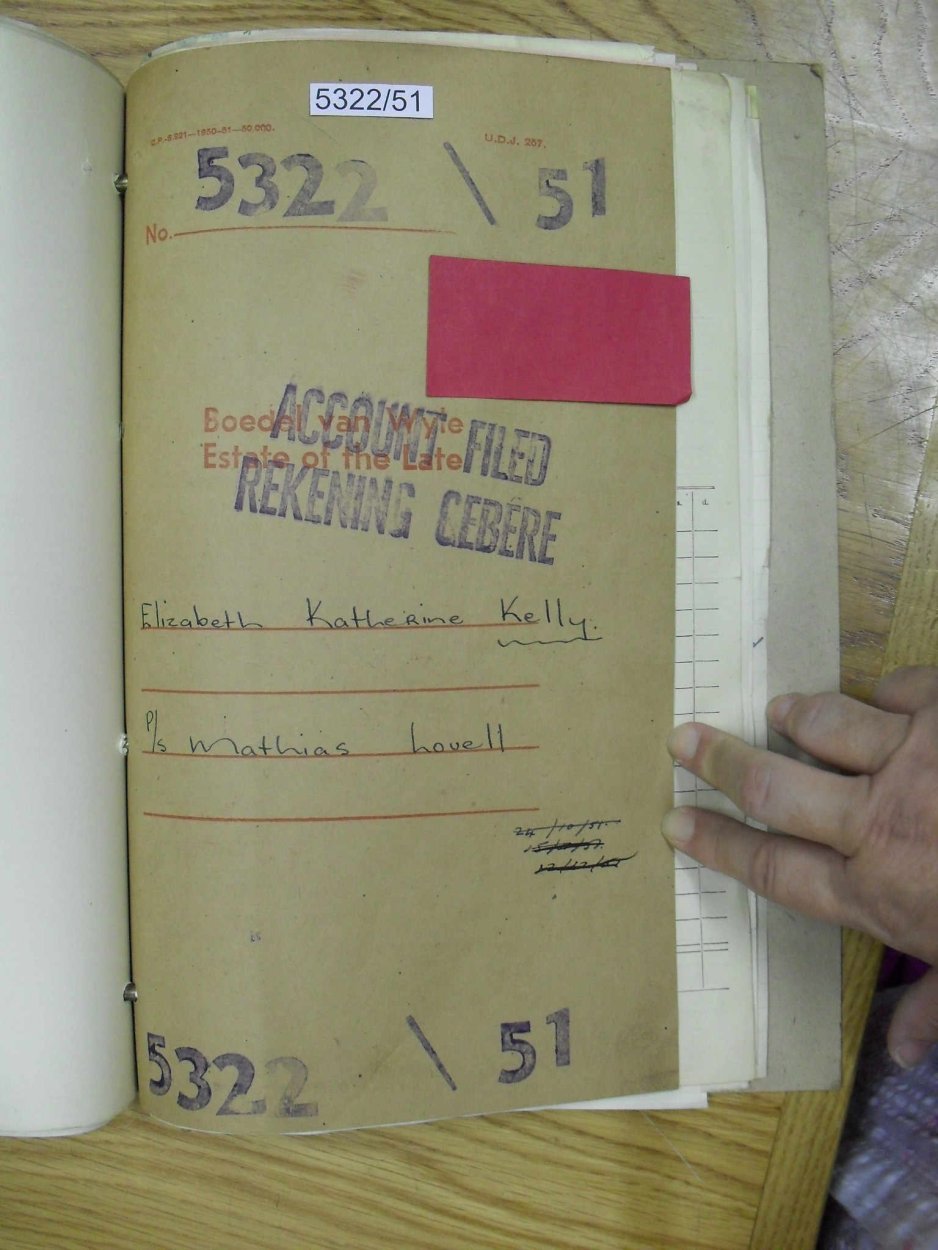 5322/51
G.P.-S.221—1950-51—50,000.
U.D.J. 257.
5322 \ 51
No.
Boedel van Wyle
Estate of the Late
ACCOUNT FILED
REKENING GEBÊRE
Elizabeth Katherine Kelly.
P/s Mathias Lovell
24/10/51.
5322 \ 51